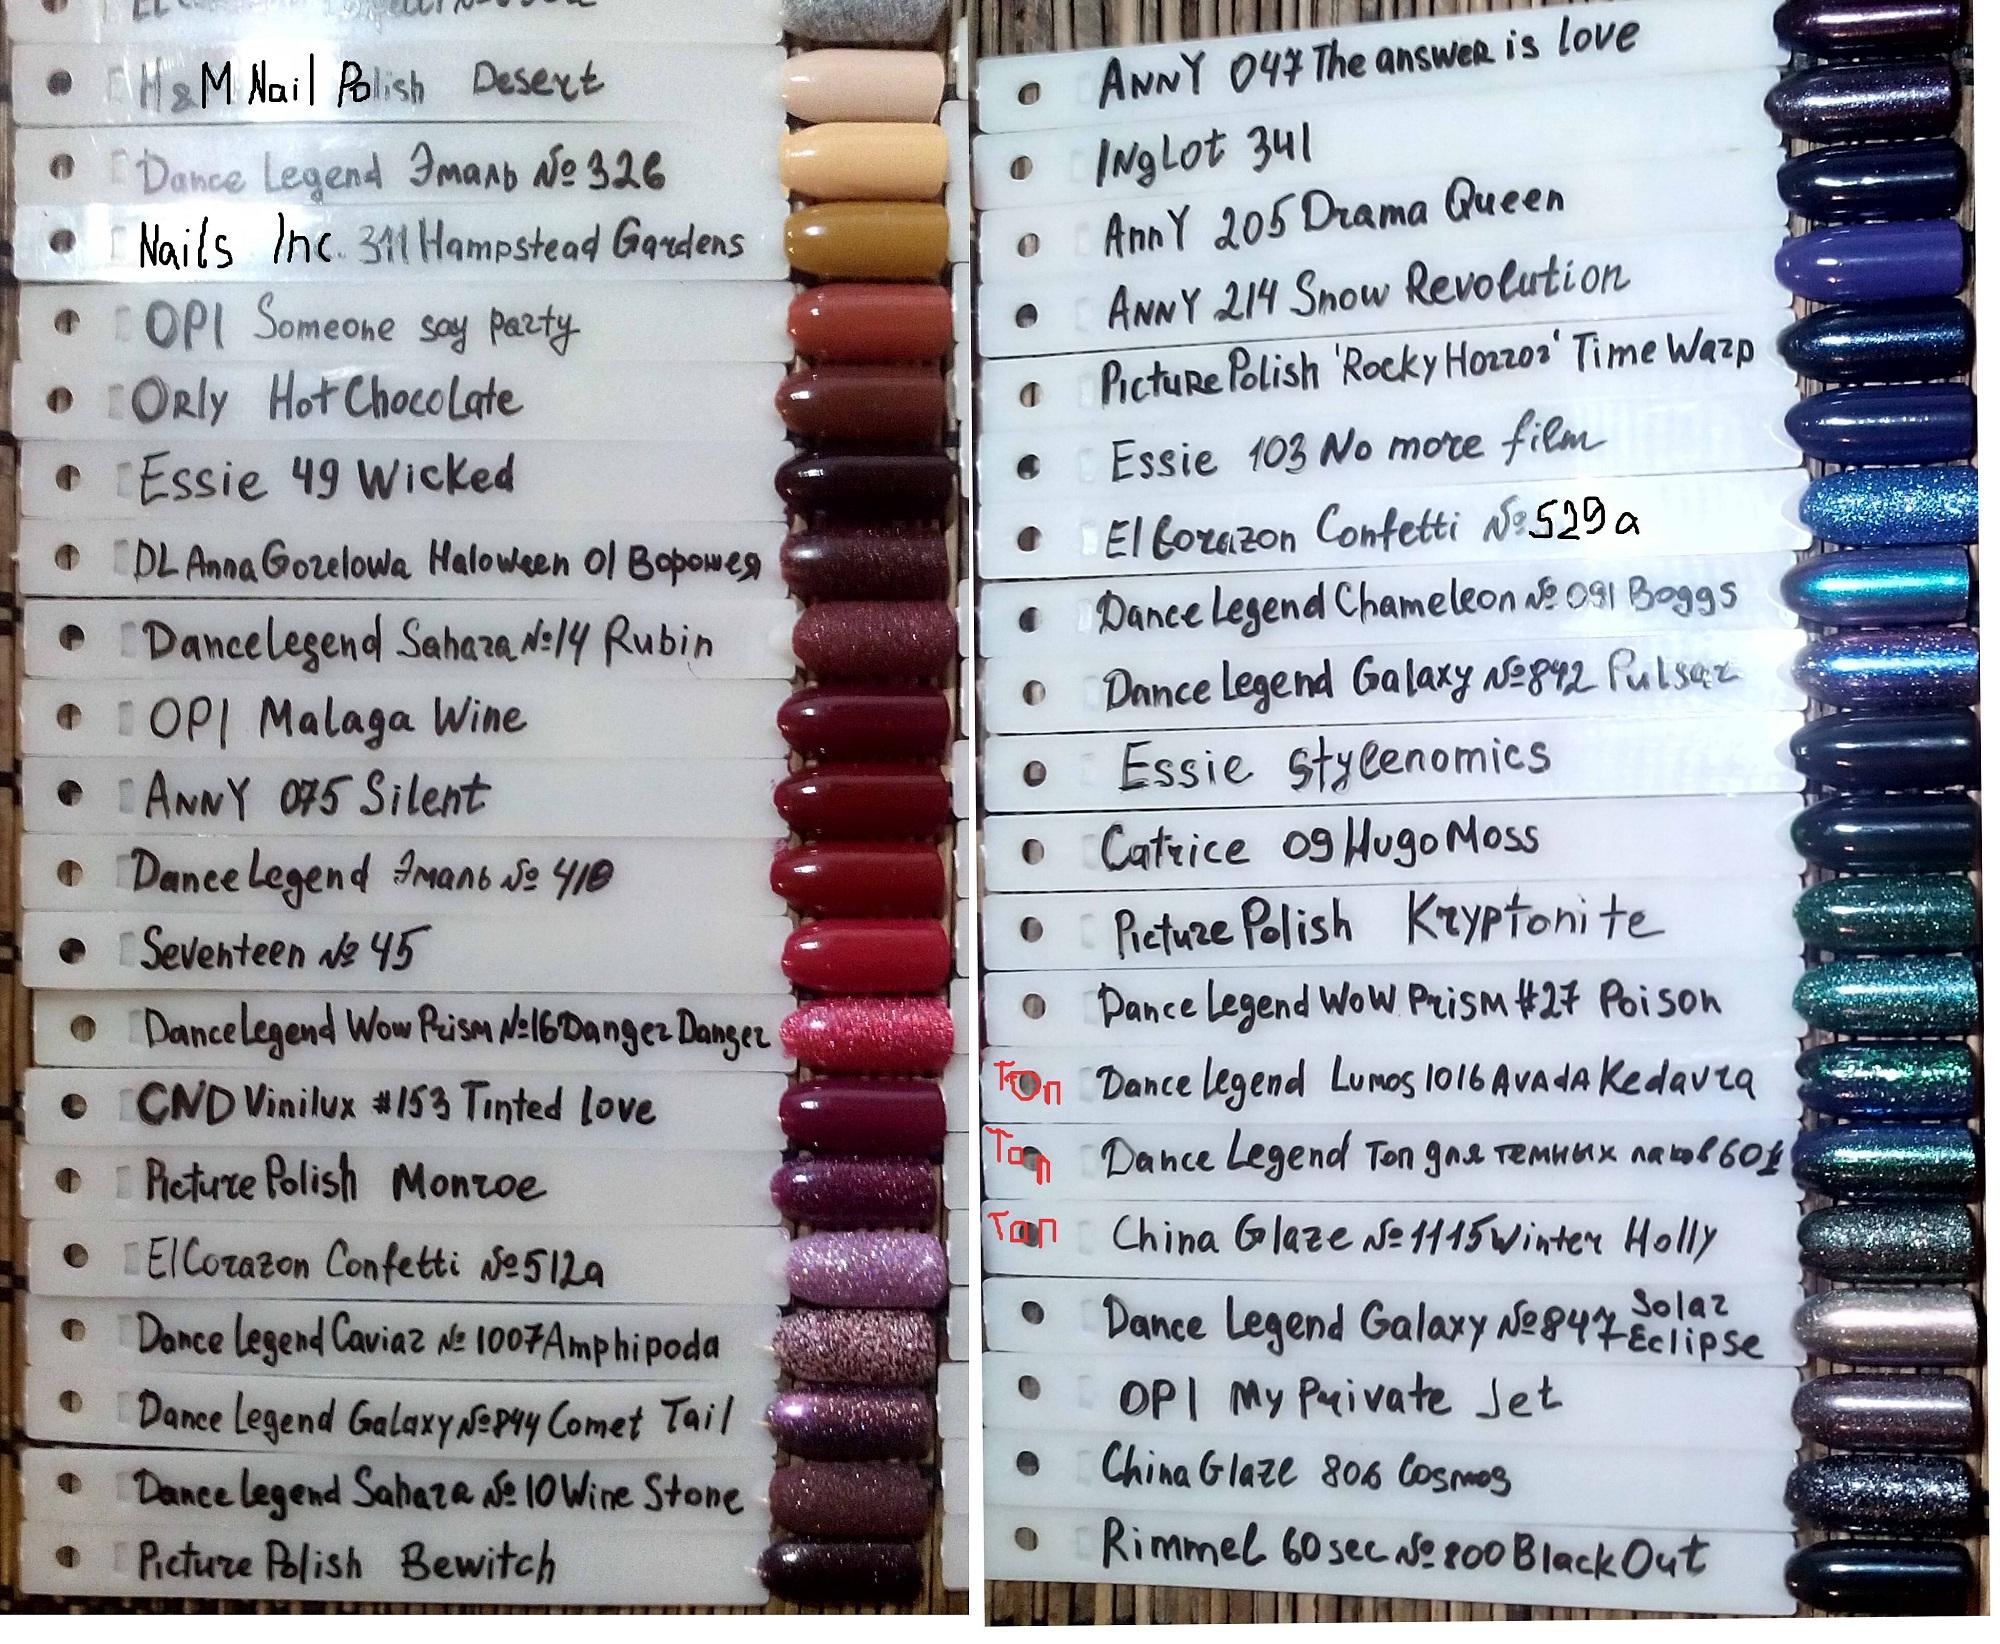 H&M Nail Polish Desert
Dance Legend Эмаль № 326
Nails Inc. 311 Hampstead Gardens
OPI Someone say party
Orly Hot Chocolate
Essie 49 Wicked
DL Anna Gorelowa Haloween 01 Ворожея
Dance Legend Sahara №14 Rubin
OPI Malaga Wine
ANNY 075 Silent
Dance Legend Эмаль № 418
Seventeen № 45
Dance Legend Wow Prism №16 Danger Danger
CND Vinilux #153 Tinted love
Picture Polish Monroe
El Corazon Confetti №512a
Dance Legend Caviar № 1007 Amphipoda
Dance Legend Galaxy №844 Comet Tail
Dance Legend Sahara № 10 Wine Stone
Picture Polish Bewitch
ANNY 047 The answer is love
INGLOT 341
AnnY 205 Drama Queen
ANNY 214 Snow Revolution
Picture Polish 'Rocky Horror' Time Warp
Essie 103 No more film
El Corazon Confetti № 529a
Dance Legend Chameleon № 091 Boggs
Dance Legend Galaxy №842 Pulsar
Essie stylenomics
Catrice 09 Hugo Moss
Picture Polish Kryptonite
Dance Legend WOW Prism #27 Poison
Топ Dance Legend Lumos 1016 AVAdA Kedavra
Топ Dance Legend Топ для темных лаков 601
Топ China Glaze №1115 Winter Holly
Dance Legend Galaxy №847 Solar Eclipse
OPI My Private Jet
China Glaze 806 Cosmos
Rimmel 60 sec №800 Black Out